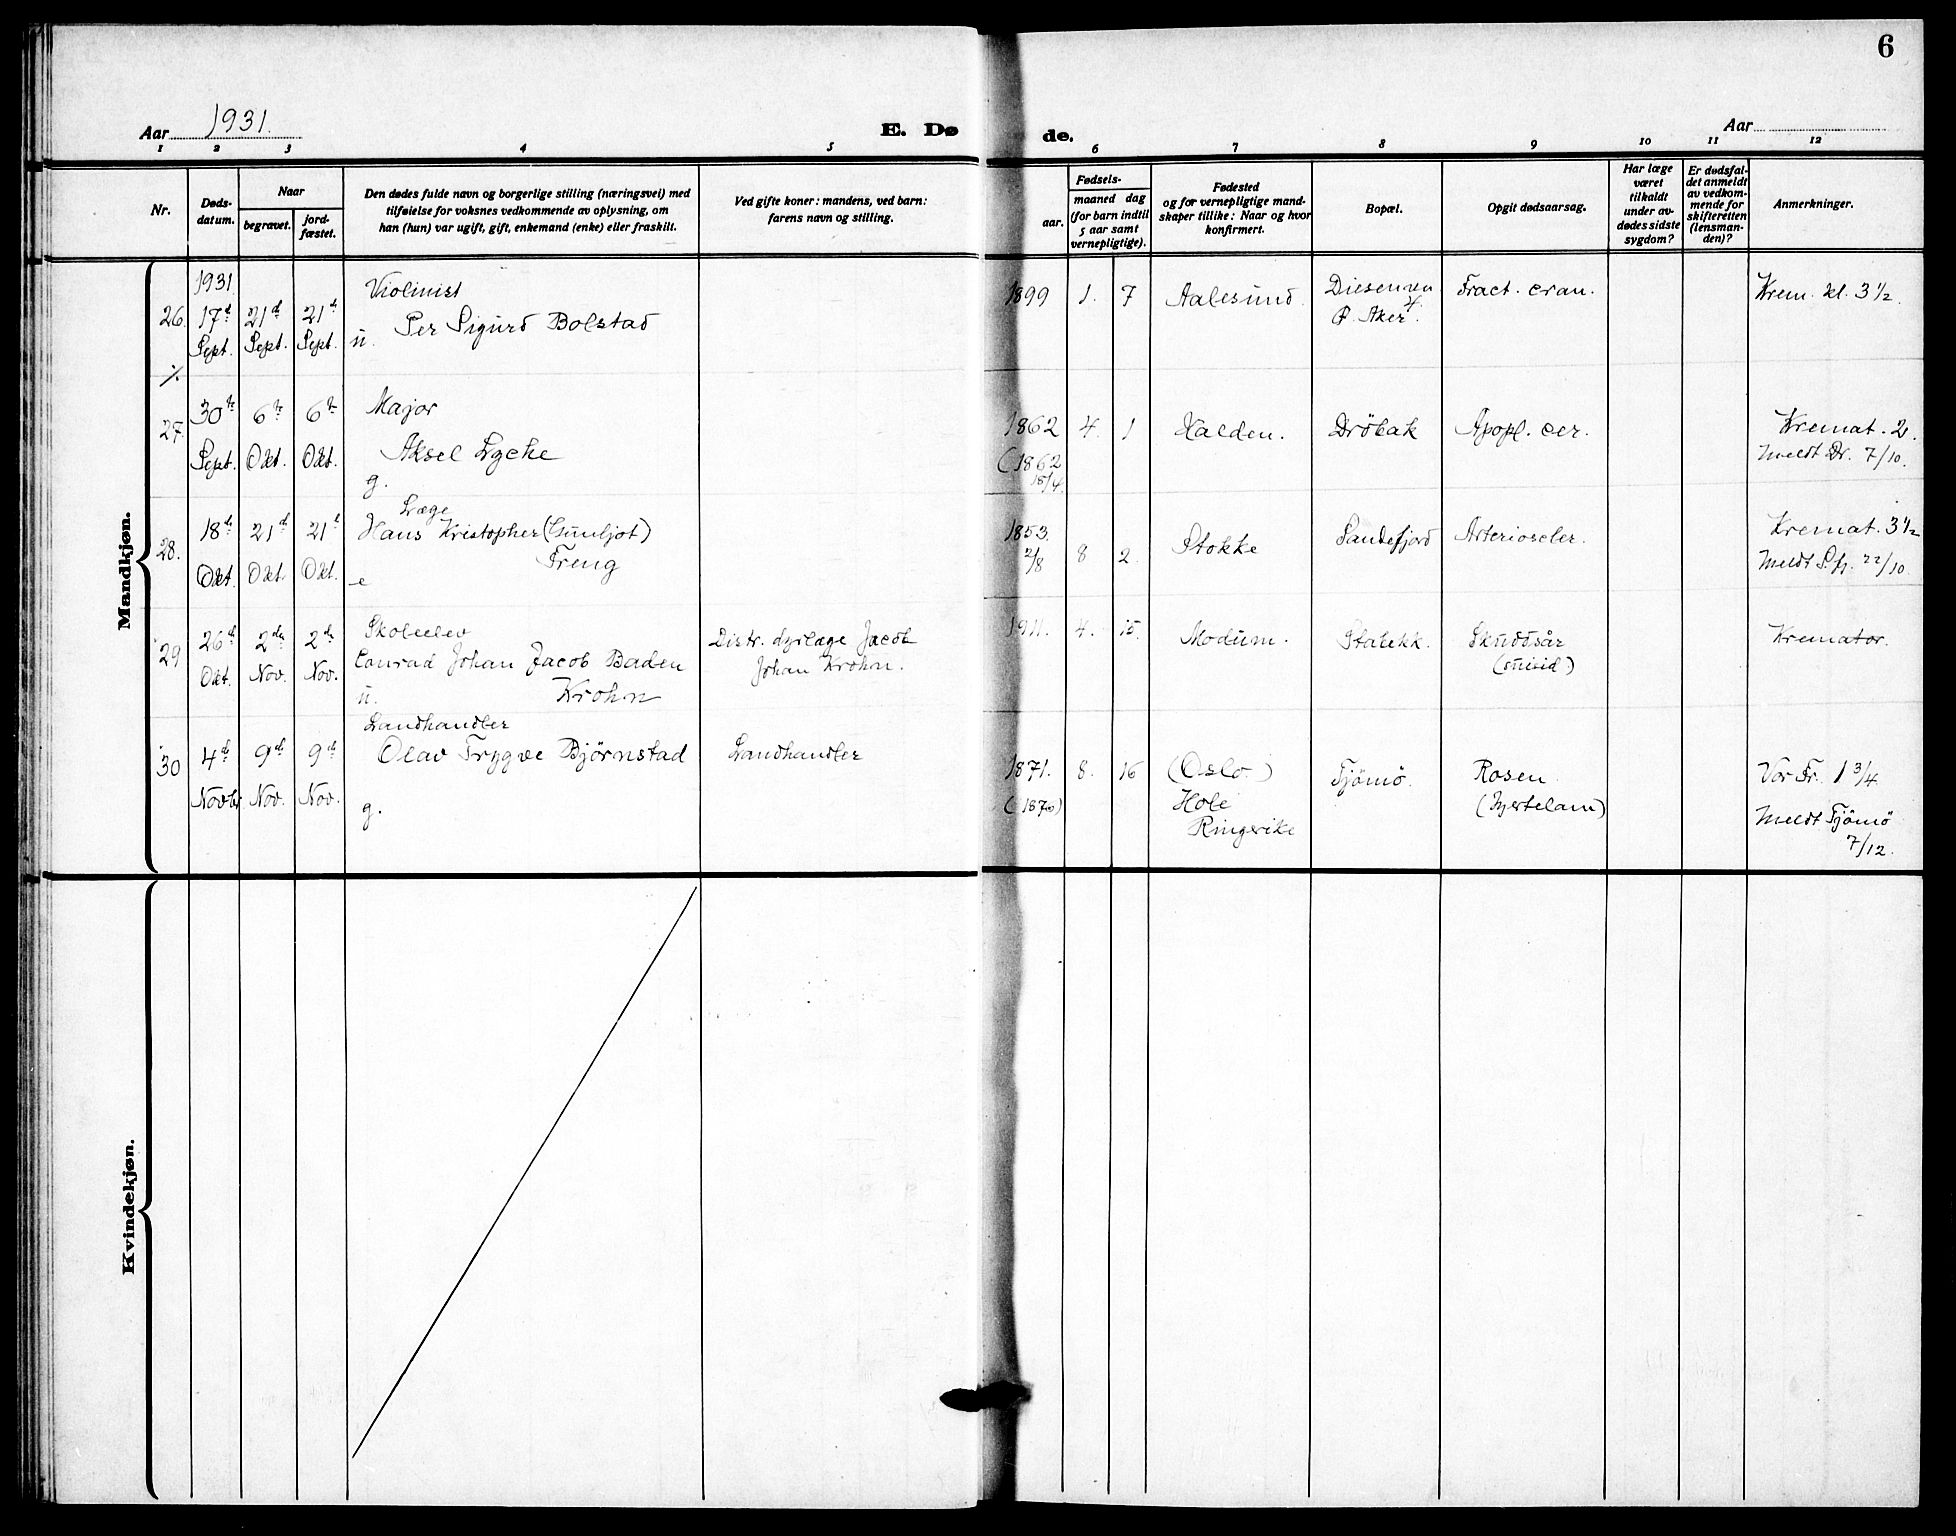 6
Aar 1931.
E. Dø
de.
Aar
1 2 3 4 5 6 7 8 9 10 11 12
Nr.
Døds-
datum.
Naar
begravet.
jord-
fæstet.
Den dødes fulde navn og borgerlige stilling (næringsvei) med
tilføielse for voksnes vedkommende av oplysning, om
han (hun) var ugift, gift, enkemand (enke) eller fraskilt.
Ved gifte koner: mandens, ved barn:
farens navn og stilling.
Fødsels-
aar.
maaned dag
(for barn indtil
5 aar samt
vernepligtige).
Fødested
og for vernepligtige mand-
skaper tillike: Naar og hvor
konfirmert.
Bopæl.
Opgit dødsaarsag.
Har læge
været
tilkaldt
under av-
dødes sidste
sygdom?
Er dødsfal-
det anmeldt
av vedkom-
mende for
skifteretten
(lensman-
den)?
Anmerkninger.
Mandkjøn.
1931
Violinist
26. 17d 21d 21d Per Sigurd Bolstad
Sept. Sept. Sept. u.
1899 1. 7 Aalesund. Fract. cran. Krem. kl. 3½.
Ø. Aker.
27. 30te 6te 6te Major
Sept. Okt. Okt. Aksel Lycke
g.
1862 4. 1 Halden. Dröbak Apopl. cer. Kremat. 2.
(1862 Meldt Dr. 7/10.
18/4.
Læge
28. 18d 21d 21d Hans Kristopher (Gunljot)
Okt. Okt. Okt. e Freng
1853. Stokke Sandefjord Arterioscler. Kremat. 3½
2/8 8 2. Meldt S.fj. 22/10
29 26d 2den 2den Skoleelev
Okt. Nov. Nov. Conrad Johan Jacob Baden
u. Krohn
Distr. dyrlæge Jacob
Johan Krohn.
1911. 4. 15. Modum. Stabekk. Skuddsår Kremator.
(suicid)
Landhandler
30 4d 9d 9d Olav Trygve Bjørnstad Landhandler
Novbr Nov. Nov. g.
1871. 8. 16 (Oslo) Tjömö. Rosen Vor Fr. 1¾
(1870) Hole (Hjertelam) Meldt Tjömö
Ringerike 7/12.
Kvindekjøn.